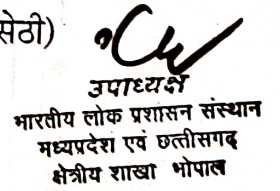 सेठी)
उपाध्यक्ष
भारतीय लोक प्रशासन संस्थान
मध्यप्रदेश एवं छत्तीसगढ़
क्षेत्रीय शाखा भोपाल